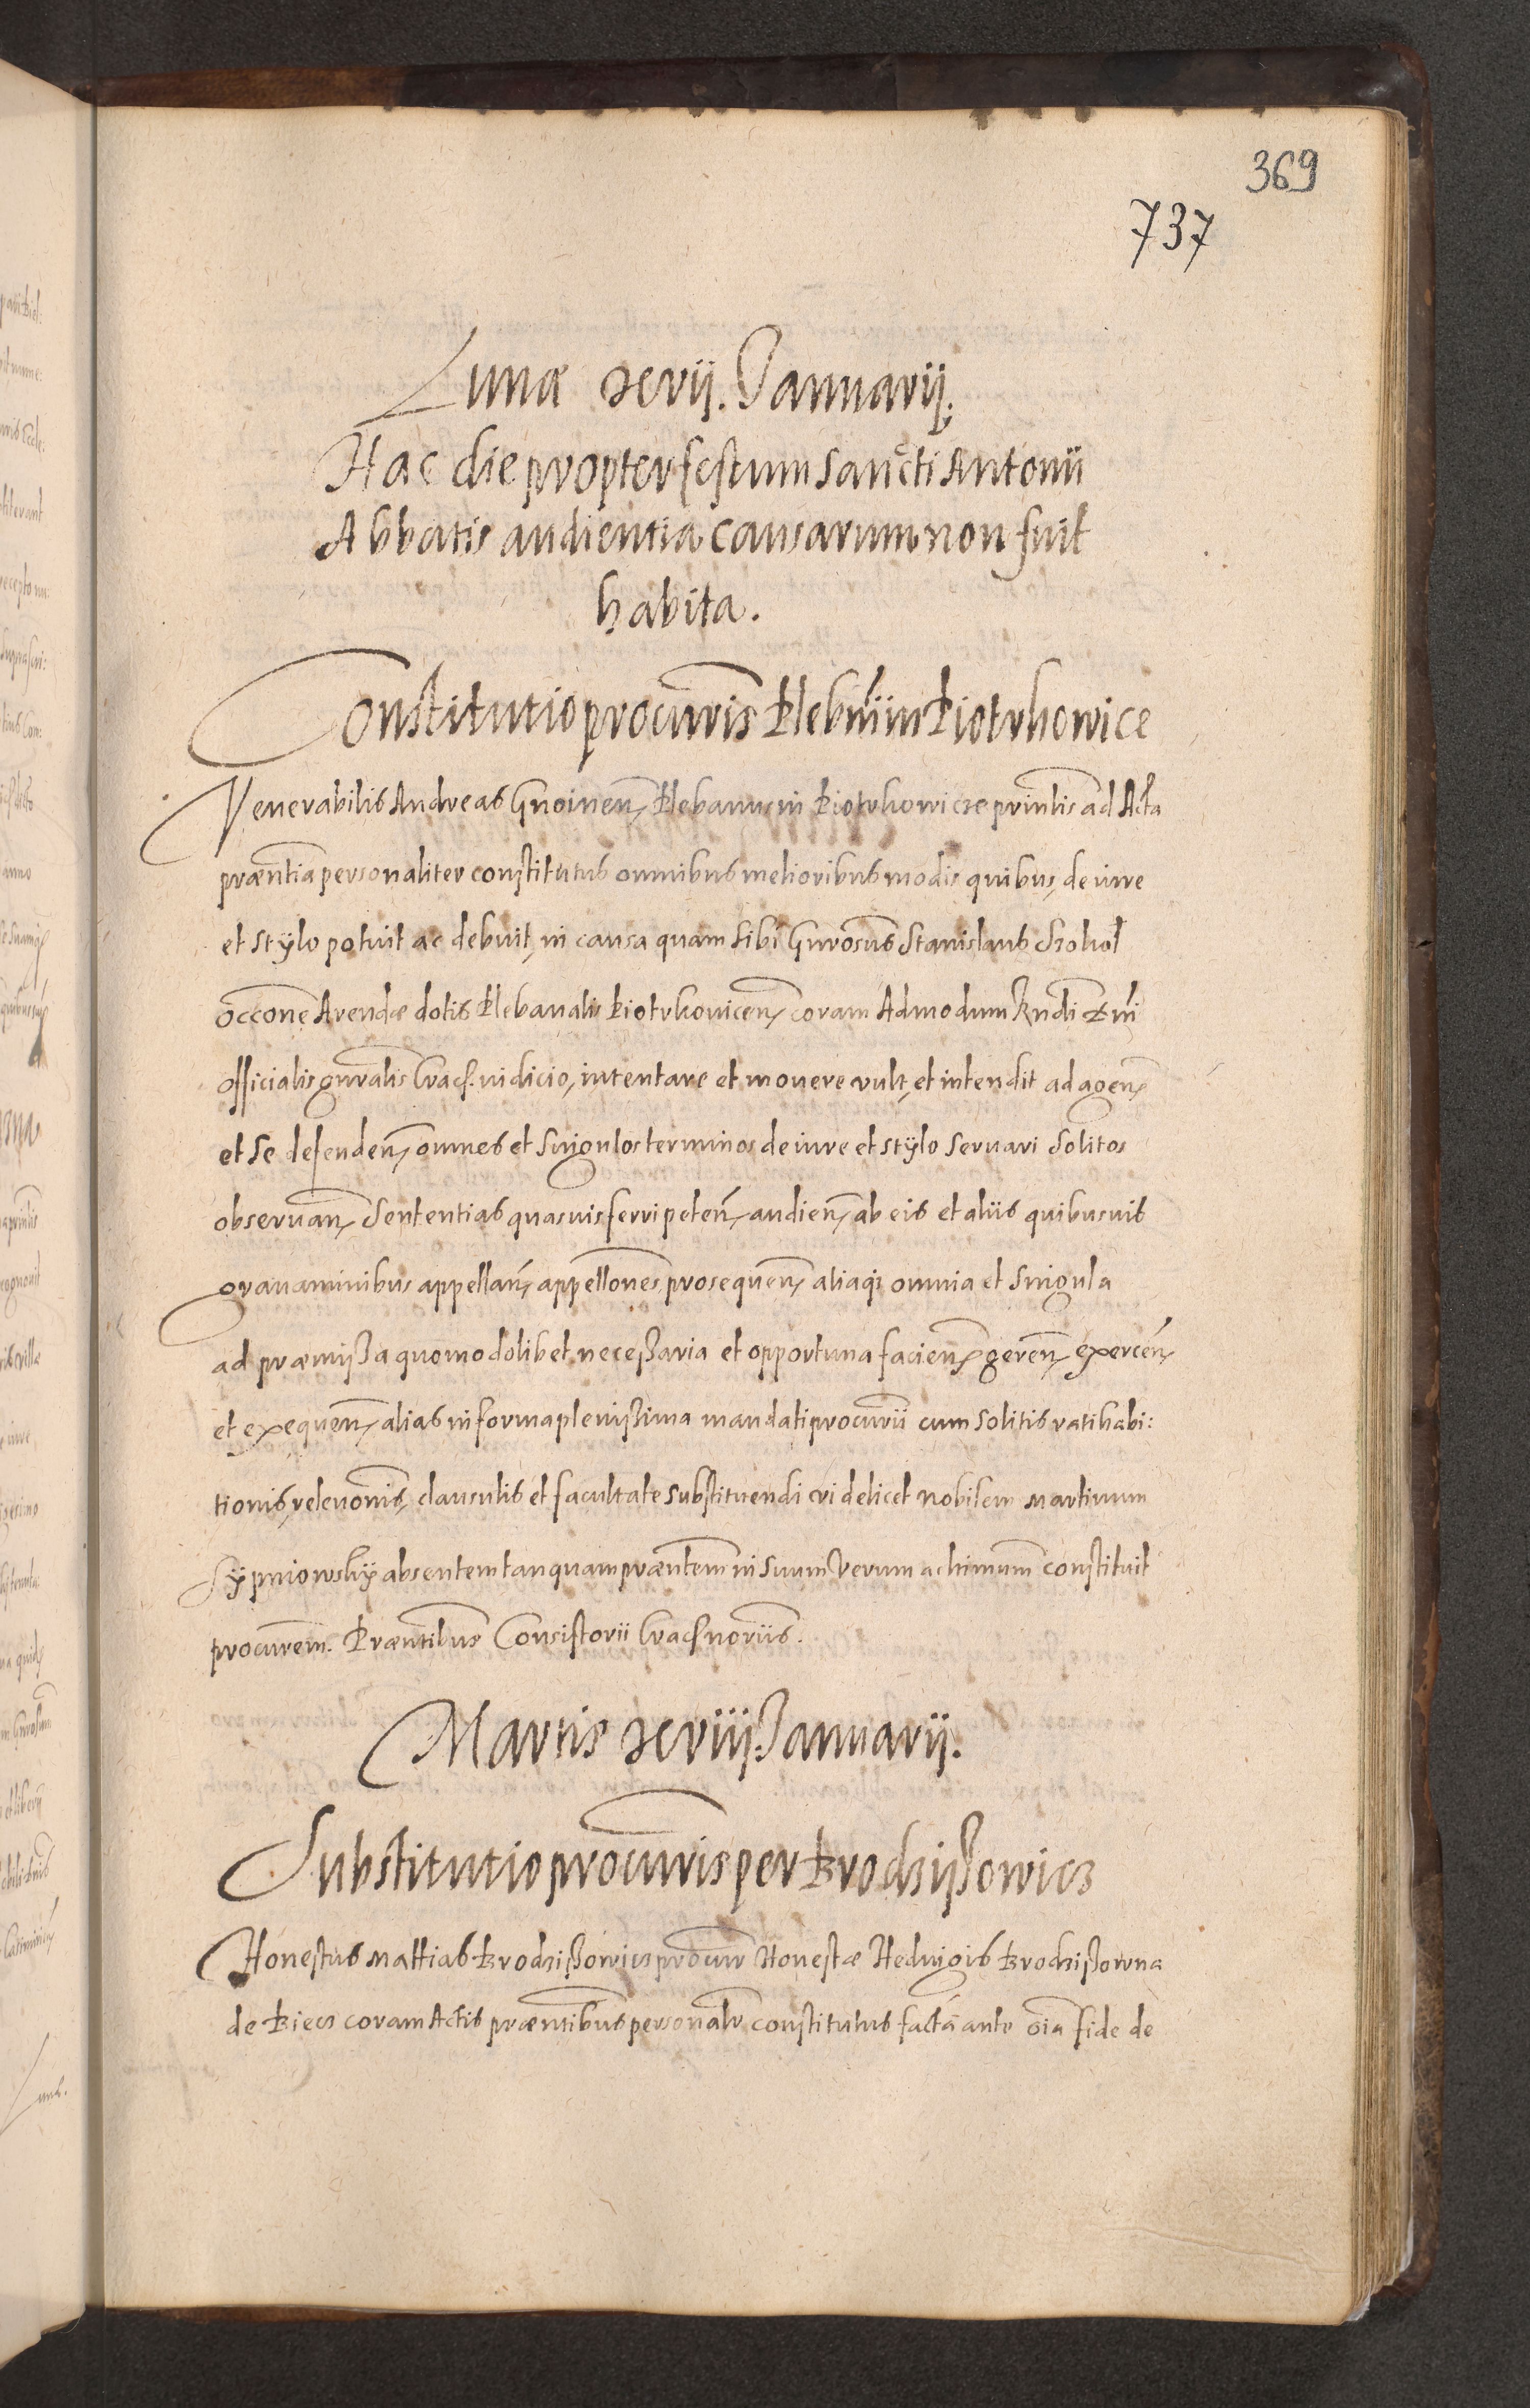 369
737
Lunæ xvij. Januarij.
Hac die propter festum Sancti Antonii
Abbatis audientia causarum non fuit
habita.
Constitutio procuris Plebni in Piotrkowice
Venerabilis Andreas Gnoinen Plebanus in Piotrkowicze prinlis ad Acta
præntia personaliter constitutus omnibus melioribus modis quibus, de iure
et stÿlo potuit ac debuit, in causa quam sibi Gnrosus Stanislaus
occone Arendæ dotis Plebanalis Piotrkovicen coram Admodum Rndi Dni
officialis gnralis Crac. iudicio, intentare et mouere vult, et intendit ad agen
et se defenden, omnes et singulos terminos de iure et stÿlo seruari solitos
obseruan, Sententias quasuis ferri peten, audien, ab eis et aliis quibusuis
grauaminibus appellan, appellones prosequen, aliaq omnia et singula
ad præmißa quomodolibet neceßaria et opportuna facien, geren, exercen,
et exequen, alias in forma plenißima mandati procurii cum solitis ratihabi:
tionis, releuonis, clausulis et facultate substituendi videlicet Nobilem Martinum
absentem tanquam præntem in suum verum ac ltimum constituit
procurem. Præntibus Consistorii Crac noriis.
Martis xviij. Januarij.
Substitutio procuris per Brodzißowicz
Honestus Mattias Brodzißowicz procur Honestæ Hedvigis Brodzißowna
de Biecz coram Actis præntibus personalr constitutus facta ante oia fide de